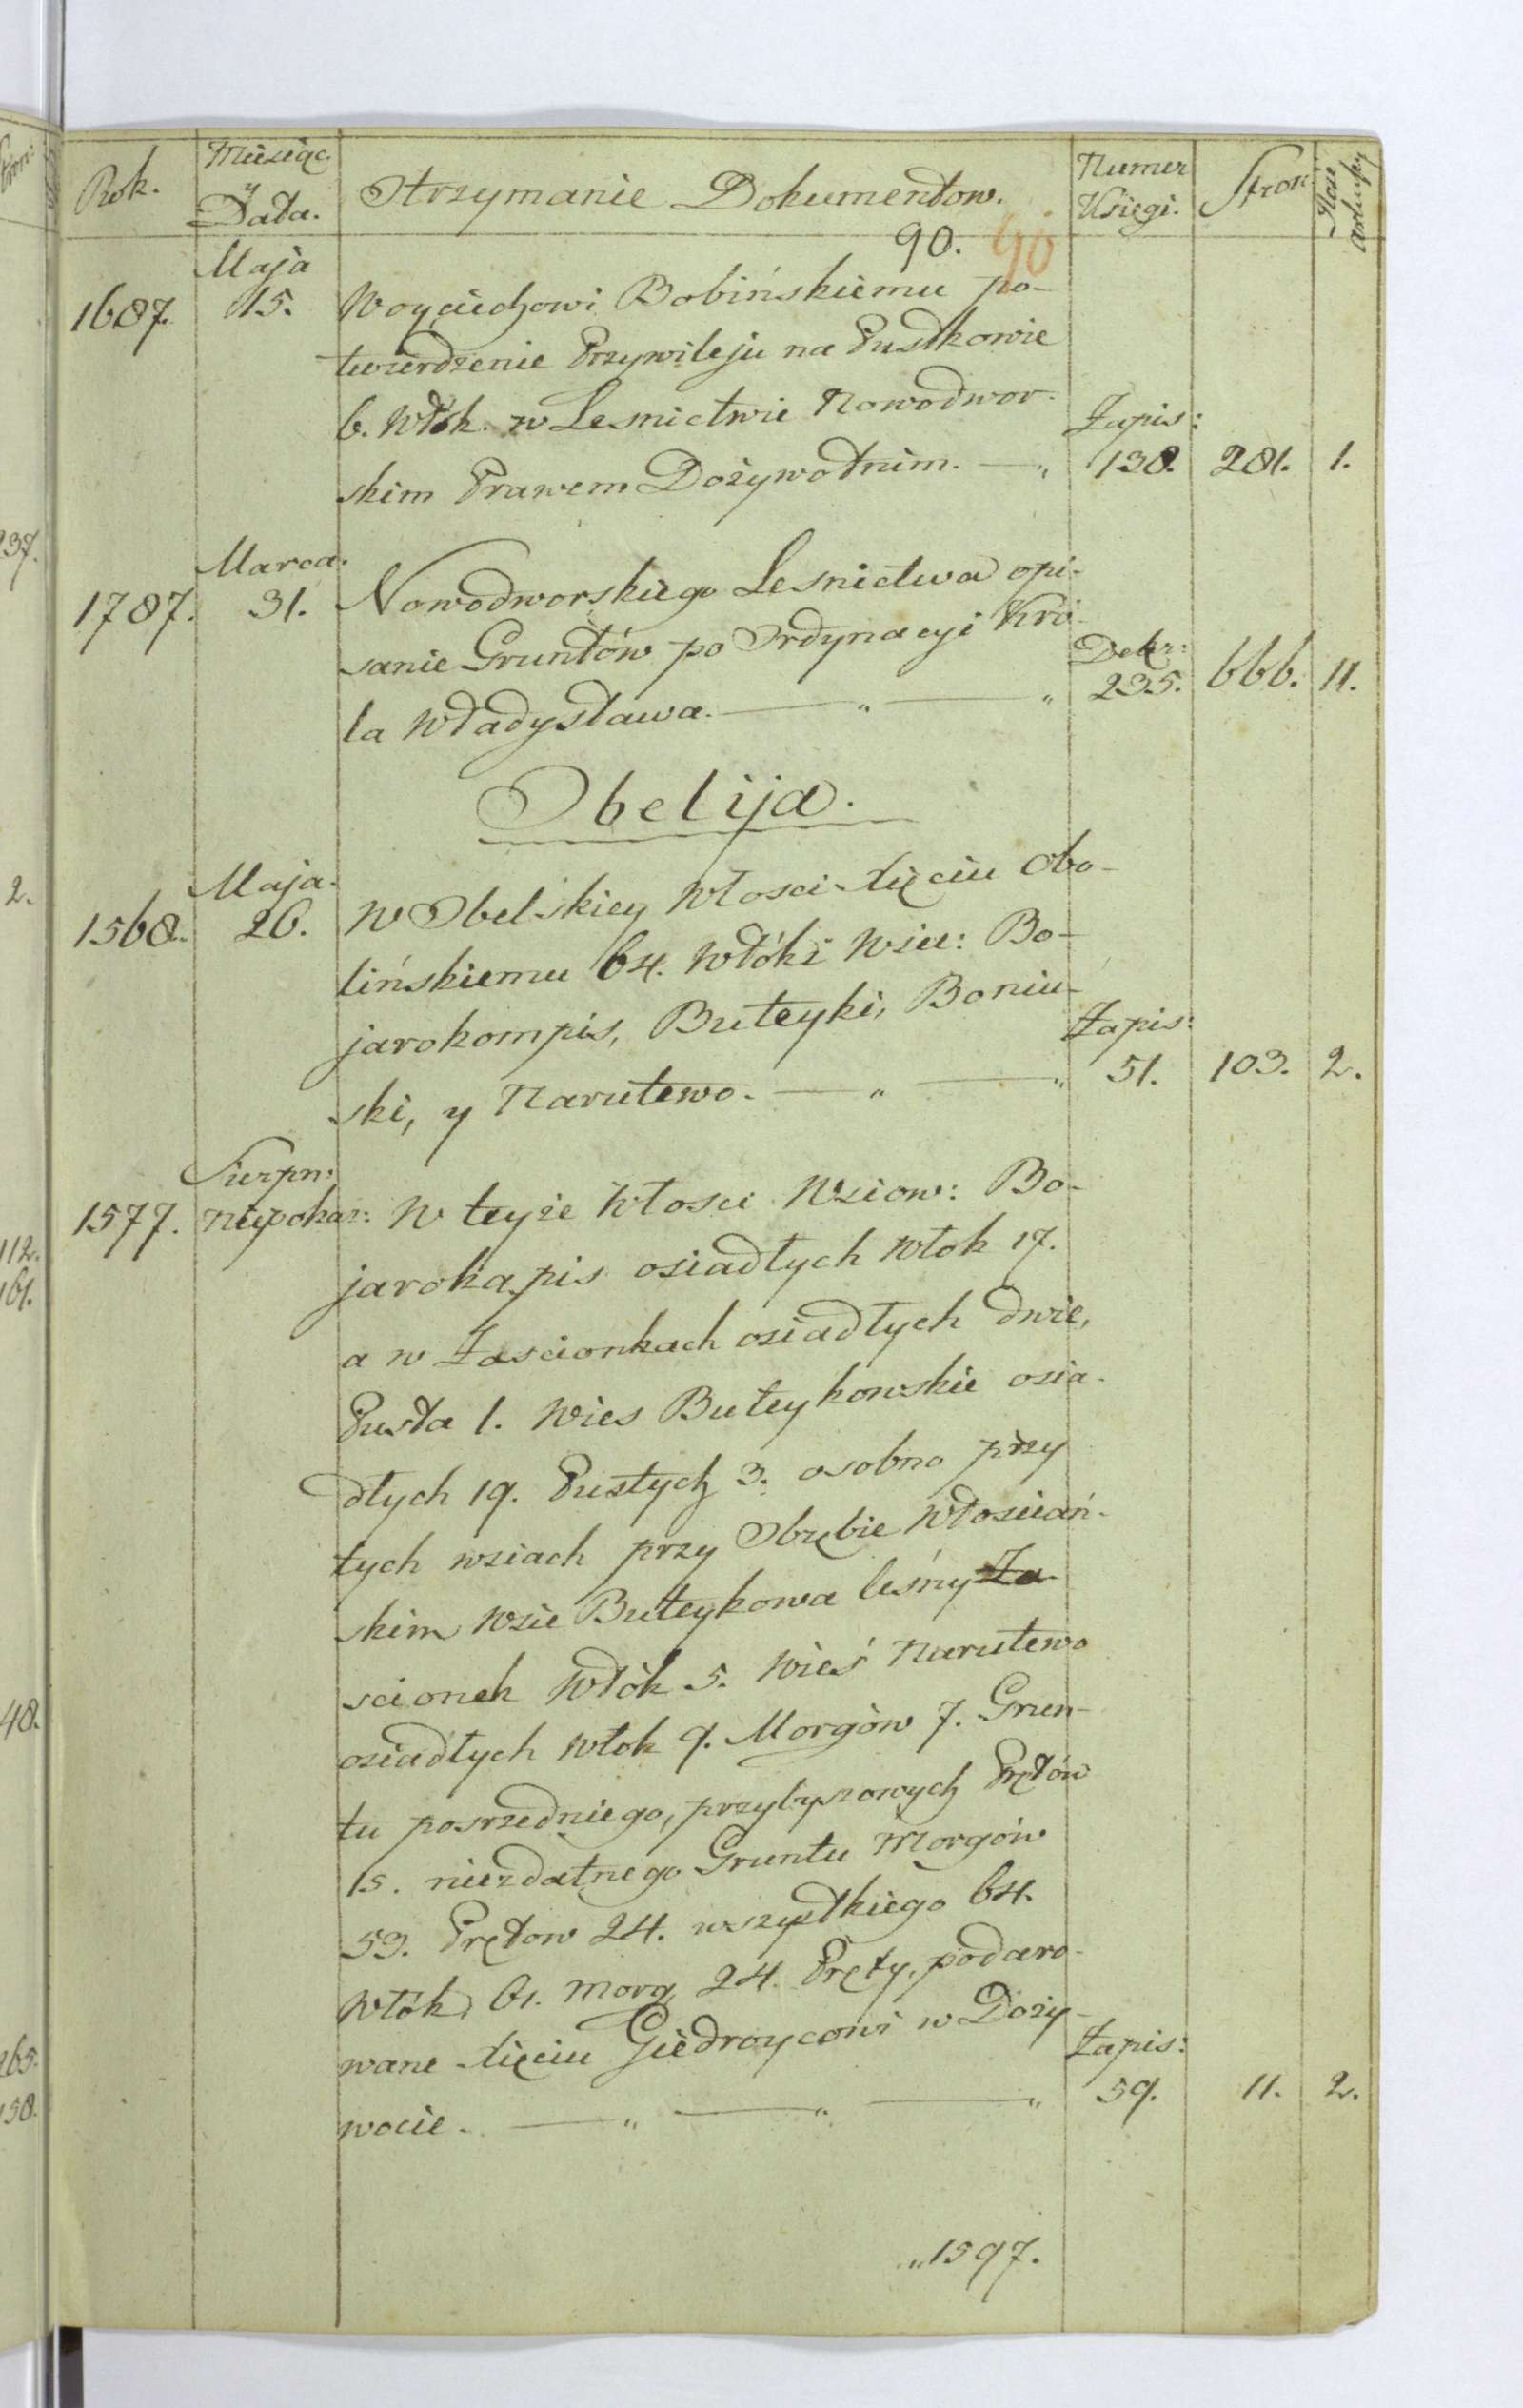 Rok.
Miesiąc
y
Data.
Otrzymanie Dokumentow.
Numer
Księgi.
Stron
90. 90
Maja
1687. 15. Woyciechowi Bobińskiemu po-
twierdzenie Przywileju na Pustkowie
6. Włok. w Lesnictwie Nowodwor-
Zapis:
skim Prawem Dożywotnim. — „ 138. 281. 1.
Marca.
1787. 31. Nowodworskiego Lesnictwa opi-
sanie Gruntów po Ordynacyi Kró-
Dekr:
la Władysława. — „ — „ 235. 666. 11.
Obelija.
Maja.
1568. 26. W Obelskiey Włosci Xięciu Obo-
lińskiemu 64. Włóki Wsiu: Bo-
jarokompis, Buteyki, Boniu-
Zapis:
ski, y Narutewo. — „ — „ 51. 103. 2.
Sierpn:
1577. Niepokaz: W teyże Włosci Wsiow: Bo-
jarokapis osiadłych Włok 17.
a w Zascionkach osiadłych dwie,
Pusta 1. Wies Buteykowskie osia-
dłych 19. Pustych 3. osobno przy
tych wsiach przy Obrębie Włosciań-
skim Wsie Buteykowa leśny Za-
scionek Włók 5. Wieś Narutewo
osiadłych Włok 9. Morgów 7. Grun-
tu posrzedniego, przybyszowych Prętów
15. niezdatnego Gruntu Morgów
53. Prętow 24. wszystkiego 64.
Włók, 61. morg 24. Pręty, podaro-
wane Xięciu Giedroycowi w Doży-
Zapis:
wocie. — „ — „ — „ 59. 11. 2.
„1597.
237.
2.
112.
161.
48.
265.
158.